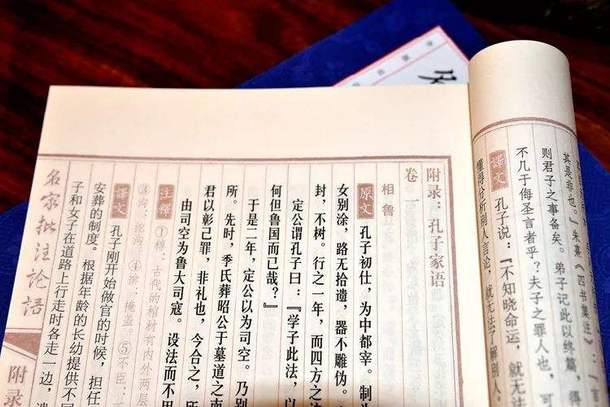 其是非也。”朱熹《四书集注》：
则君子之事备矣。弟子记此以终篇，得
不几于侮圣言者乎？夫子之罪人也，可
译文 孔子说：“不知晓命运，就无法
懂得分析别人言论，就无法了解别人。
附录：孔子家语
卷一
相鲁
原文 孔子初仕，为中都宰。制
女别涂，路无拾遗，器不雕伪。
封，不树。行之一年，而四方之
定公谓孔子曰：“学子此法，以
何但鲁国而已哉？”
于是二年，定公以为司空。乃别
所。先时，季氏葬昭公于墓道之南
君以彰己罪，非礼也，今合之，所
由司空为鲁大司寇。设法而不用
注释 ①椁：古代的棺材有内外两层
③沟：挖沟。④涂：掩盖。⑤不臣：
译文 孔子刚开始做官的时候，担任
安葬的制度。根据年龄的长幼提供不同
子和女子在道路上行走时各走一边，遗
名家批注论语
附录